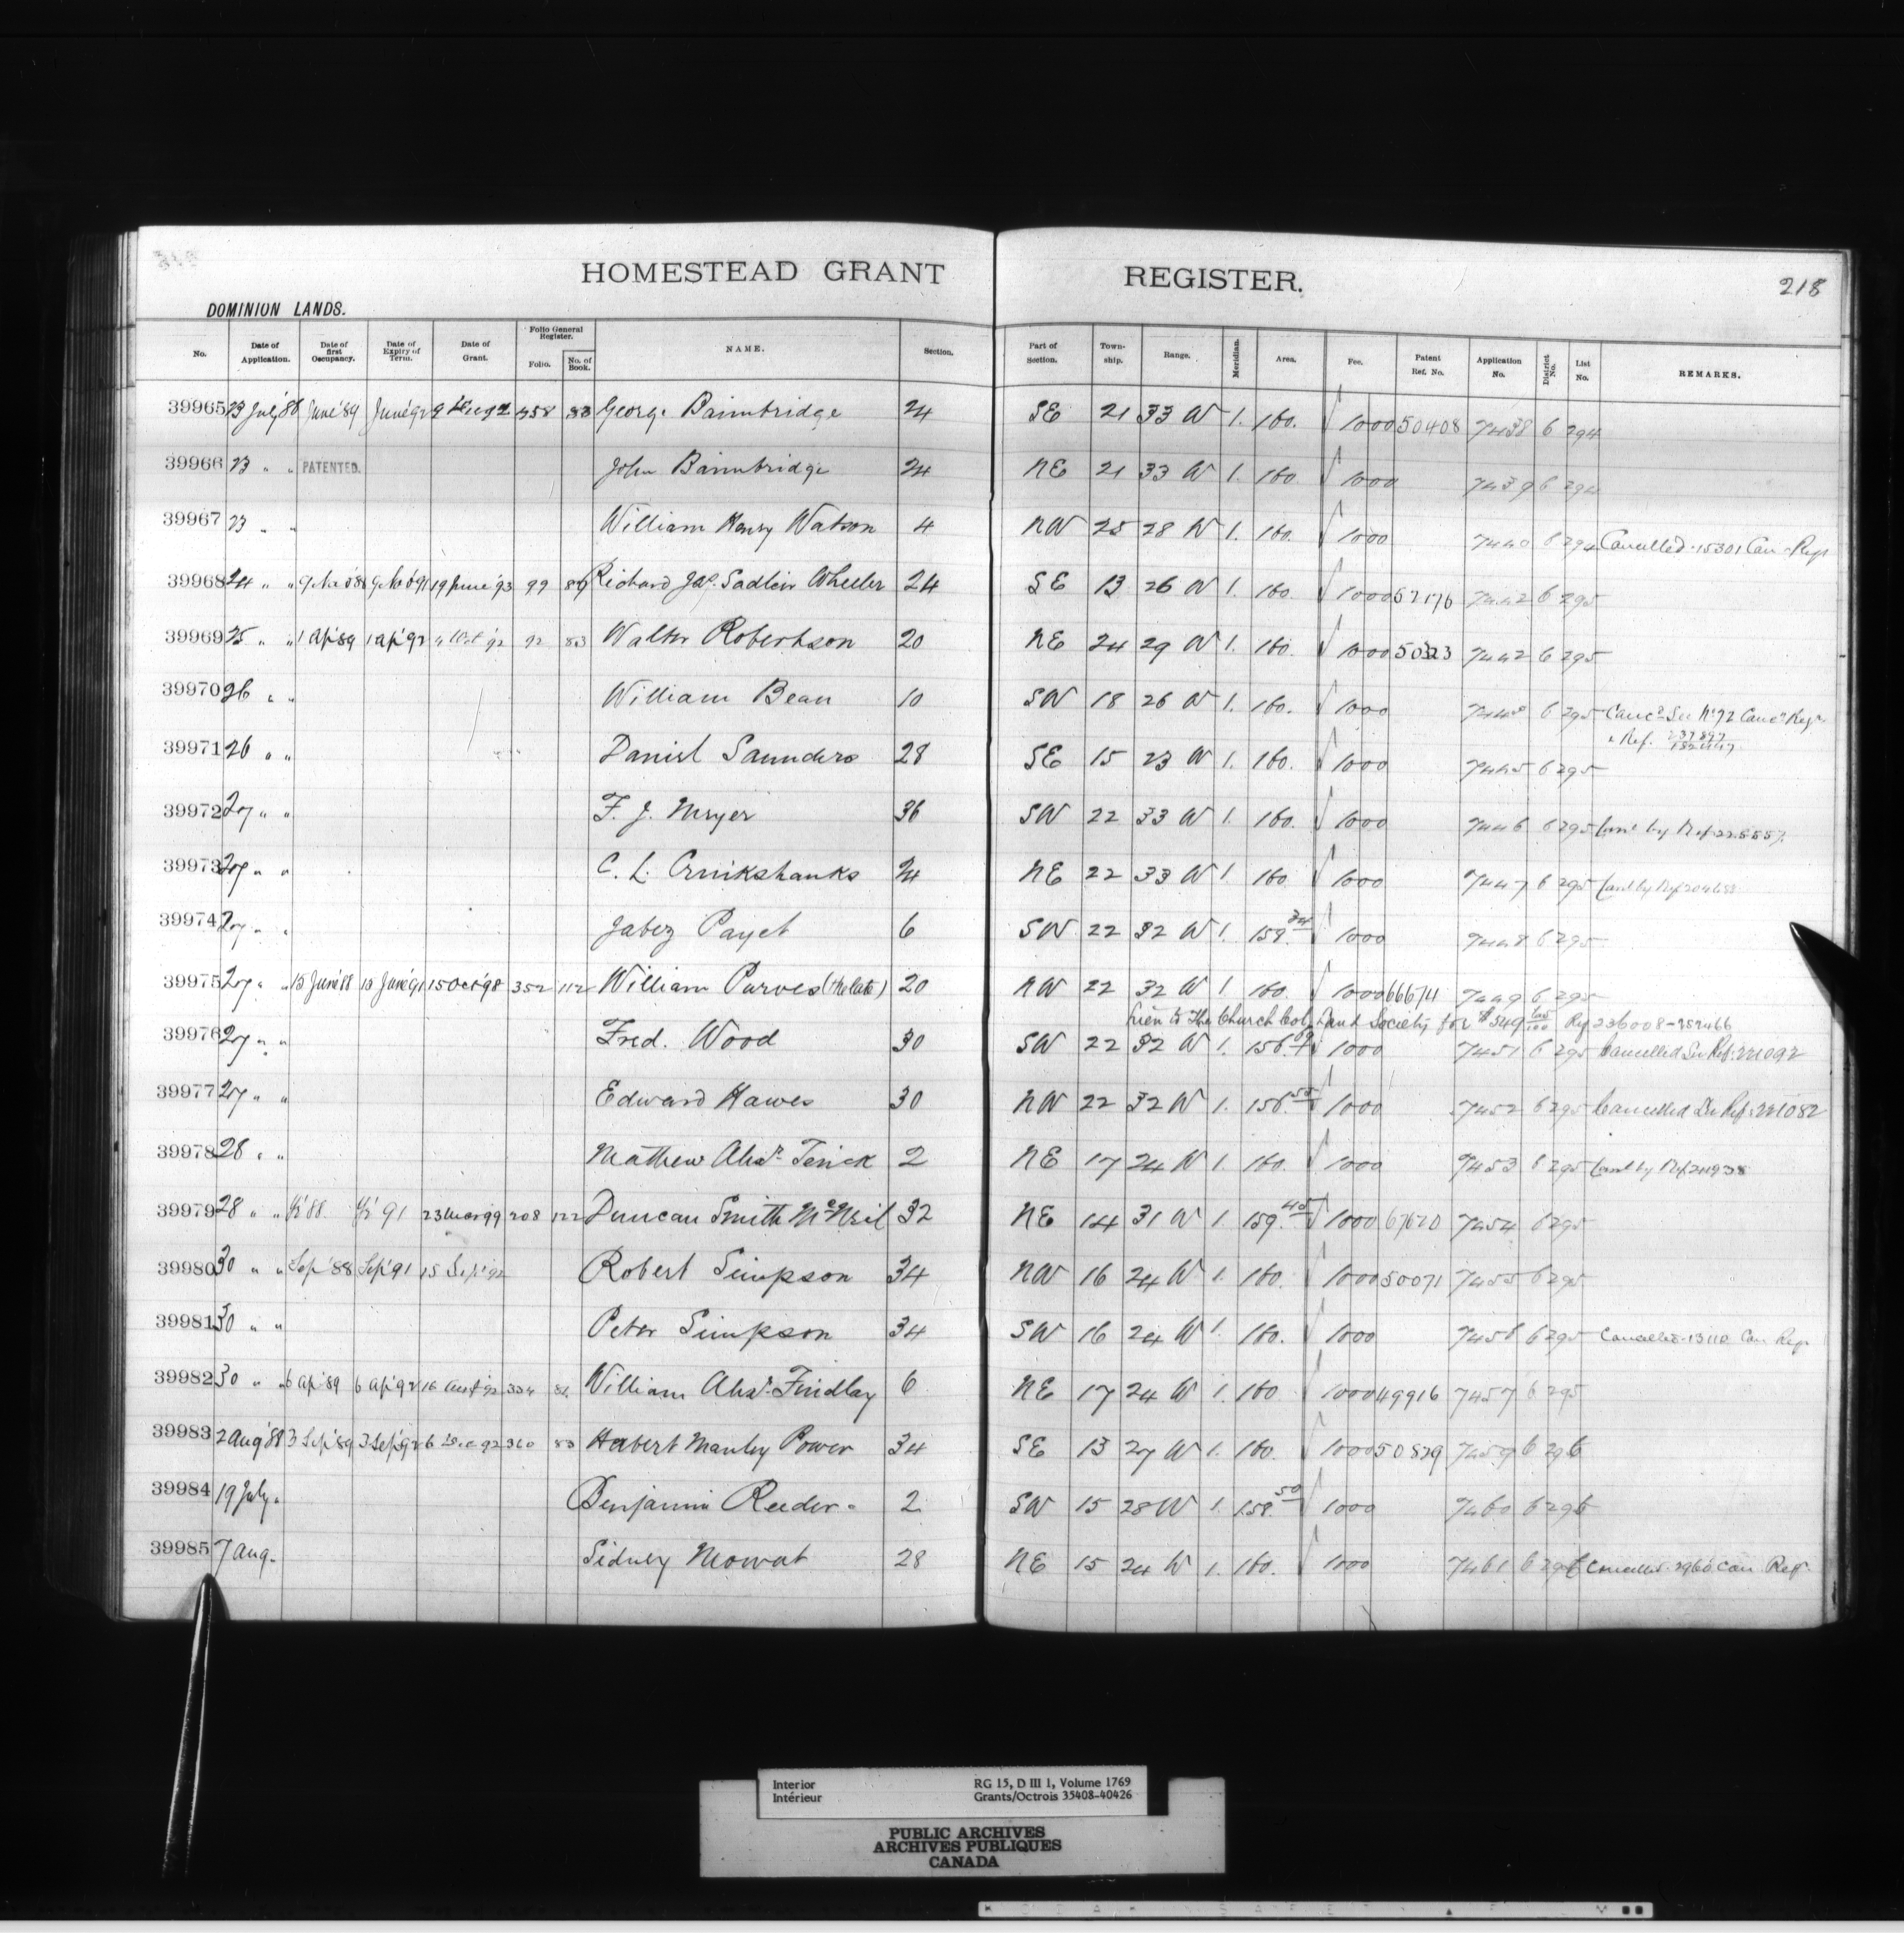 HOMESTEAD GRANT REGISTER. 218
DOMINION LANDS.
No. Date of Application. Date of first Occupancy. Date of Expiry of Term. Date of Grant. Folio General Register. Folio. No. of Book. NAME. Section. Part of Section. Town-ship. Range. Meridian. Area. Fee. Patent Ref. No. Application No. District No. List No. REMARKS.
39965 23 July '88 June '89 June '92 9 Dec 92 358 83 George Bainbridge 24 SE 21 33 W 1. 160. 1000 50408 7438 6 294
39966 23 " " PATENTED. John Bainbridge 24 NE 21 33 W 1. 160 1000 7439 6 294
39967 23 " " William Henry Watson 4 NW 25 28 W 1. 160. 1000 7440 6 294 Cancelled 15301 Can Regr
39968 24 " " 19 June '93 99 89 Richard Jas. Sadleir Wheeler 24 SE 13 26 W 1. 160. 1000 7442 6 295
39969 25 " " 1 Ap '89 1 ap '92 92 83 Walter Robertson 20 NE 24 29 W 1. 160. 1000 50323 7442 6 295
39970 26 " " William Bean 10 SW 18 26 W 1. 160. 1000 6 295 Canc'd See No 92 Canc'n Regr
& Ref. 237897
39971 26 " " Daniel Saunders 28 SE 15 23 W 1. 160. 1000 7445 6 295
39972 27 " " F. J. Meyer 36 SW 22 33 W 1. 160. 1000 7446 6 295 Canc by Ref 225557
39973 27 " " C. L. Cruikshanks 24 NE 22 33 W 1 160 1000 7447 6 295 Canc by Ref 204688
39974 27 " " Jabez Payet 6 SW 22 32 W 1. 159. 1000 7448 6 295
39975 27 " " 15 June '88 15 June '91 15 Oct '98 352 112 William Purves (the late) 20 NW 22 32 W 1. 160. 1000 66674 7449 6 295
Lien to The Church Col. Land Society for $549 Ref 236008-252466
39976 27 " " Fred. Wood 30 SW 22 32 W 1. 156. 1000 7451 6 295 Cancelled See Ref. 221092
39977 27 " " Edward Hawes 30 NW 22 32 W 1. 156.50 1000 7452 6 295 Cancelled See Ref. 221082
39978 28 " " Mathew Alexr. Terick 2 NE 17 24 W 1. 160. 1000 7453 6 295 Canc by Ref 211938
39979 28 " " '88 '91 23 Mar 99 208 122 Duncan Smith McNeil 32 NE 14 31 W 1. 159.40 1000 67620 7454 6 295
39980 30 " " Sep '88 Sep '91 15 Sep '92 Robert Simpson 34 NW 16 24 W 1. 160. 1000 50071 7455 6 295
39981 30 " " Peter Simpson 34 SW 16 24 W 1. 160. 1000 7456 6 295 Cancelled 13110 Can Regr
39982 30 " " 6 ap '89 6 ap '92 16 Aug '92 334 82 William Alexr. Findlay 6 NE 17 24 W 1. 160 1000 49916 7457 6 295
39983 2 Aug '88 3 Sep '89 3 Sep '92 6 Dec 92 360 83 Hubert Manley Power 34 SE 13 27 W 1. 160. 1000 50829 7459 6 296
39984 19 July Benjamin Reeder 2 SW 15 28 W 1. 158.50 1000 7460 6 296
39985 7 Aug. Sidney Mowat 28 NE 15 24 W 1. 160. 1000 7461 6 296 Cancelled 2960 Can Regr
Interior RG 15, D III 1, Volume 1769
Intérieur Grants/Octrois 35408-40426
PUBLIC ARCHIVES
ARCHIVES PUBLIQUES
CANADA